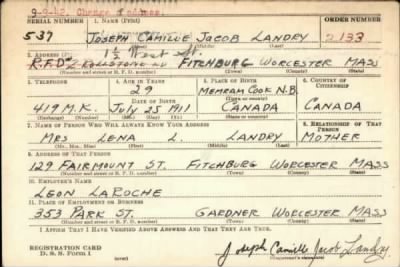 9-9-42. Change of address.
SERIAL NUMBER 1. NAME (Print) ORDER NUMBER
537 JOSEPH CAMILLE JACOB LANDRY 2133
1½ West St.
2. ADDRESS (Print)
R.F.D. 2 FITCHBURG WORCESTER MASS
(Number and street or R. F. D. number) (Town) (County) (State)
3. TELEPHONE 4. AGE IN YEARS 5. PLACE OF BIRTH 6. COUNTRY OF CITIZENSHIP
29 MEMRAM COOK N.B.
DATE OF BIRTH (Town or county)
419 M.K. July 25 1911 CANADA CANADA
(Exchange) (Number) (Mo.) (Day) (Yr.) (State or country)
7. NAME OF PERSON WHO WILL ALWAYS KNOW YOUR ADDRESS 8. RELATIONSHIP OF THAT PERSON
MRS LENA L. LANDRY MOTHER
(Mr., Mrs., Miss) (First) (Middle) (Last)
9. ADDRESS OF THAT PERSON
129 FAIRMOUNT ST. FITCHBURG WORCESTER MASS
(Number and street or R. F. D. number) (Town) (County) (State)
10. EMPLOYER'S NAME
LEON LAROCHE
11. PLACE OF EMPLOYMENT OR BUSINESS
353 PARK ST. GARDNER WORCESTER MASS
(Number and street or R. F. D. number) (Town) (County) (State)
I AFFIRM THAT I HAVE VERIFIED ABOVE ANSWERS AND THAT THEY ARE TRUE.
REGISTRATION CARD
D. S. S. Form 1 Joseph Camille Jacob Landry
(Registrant's signature)